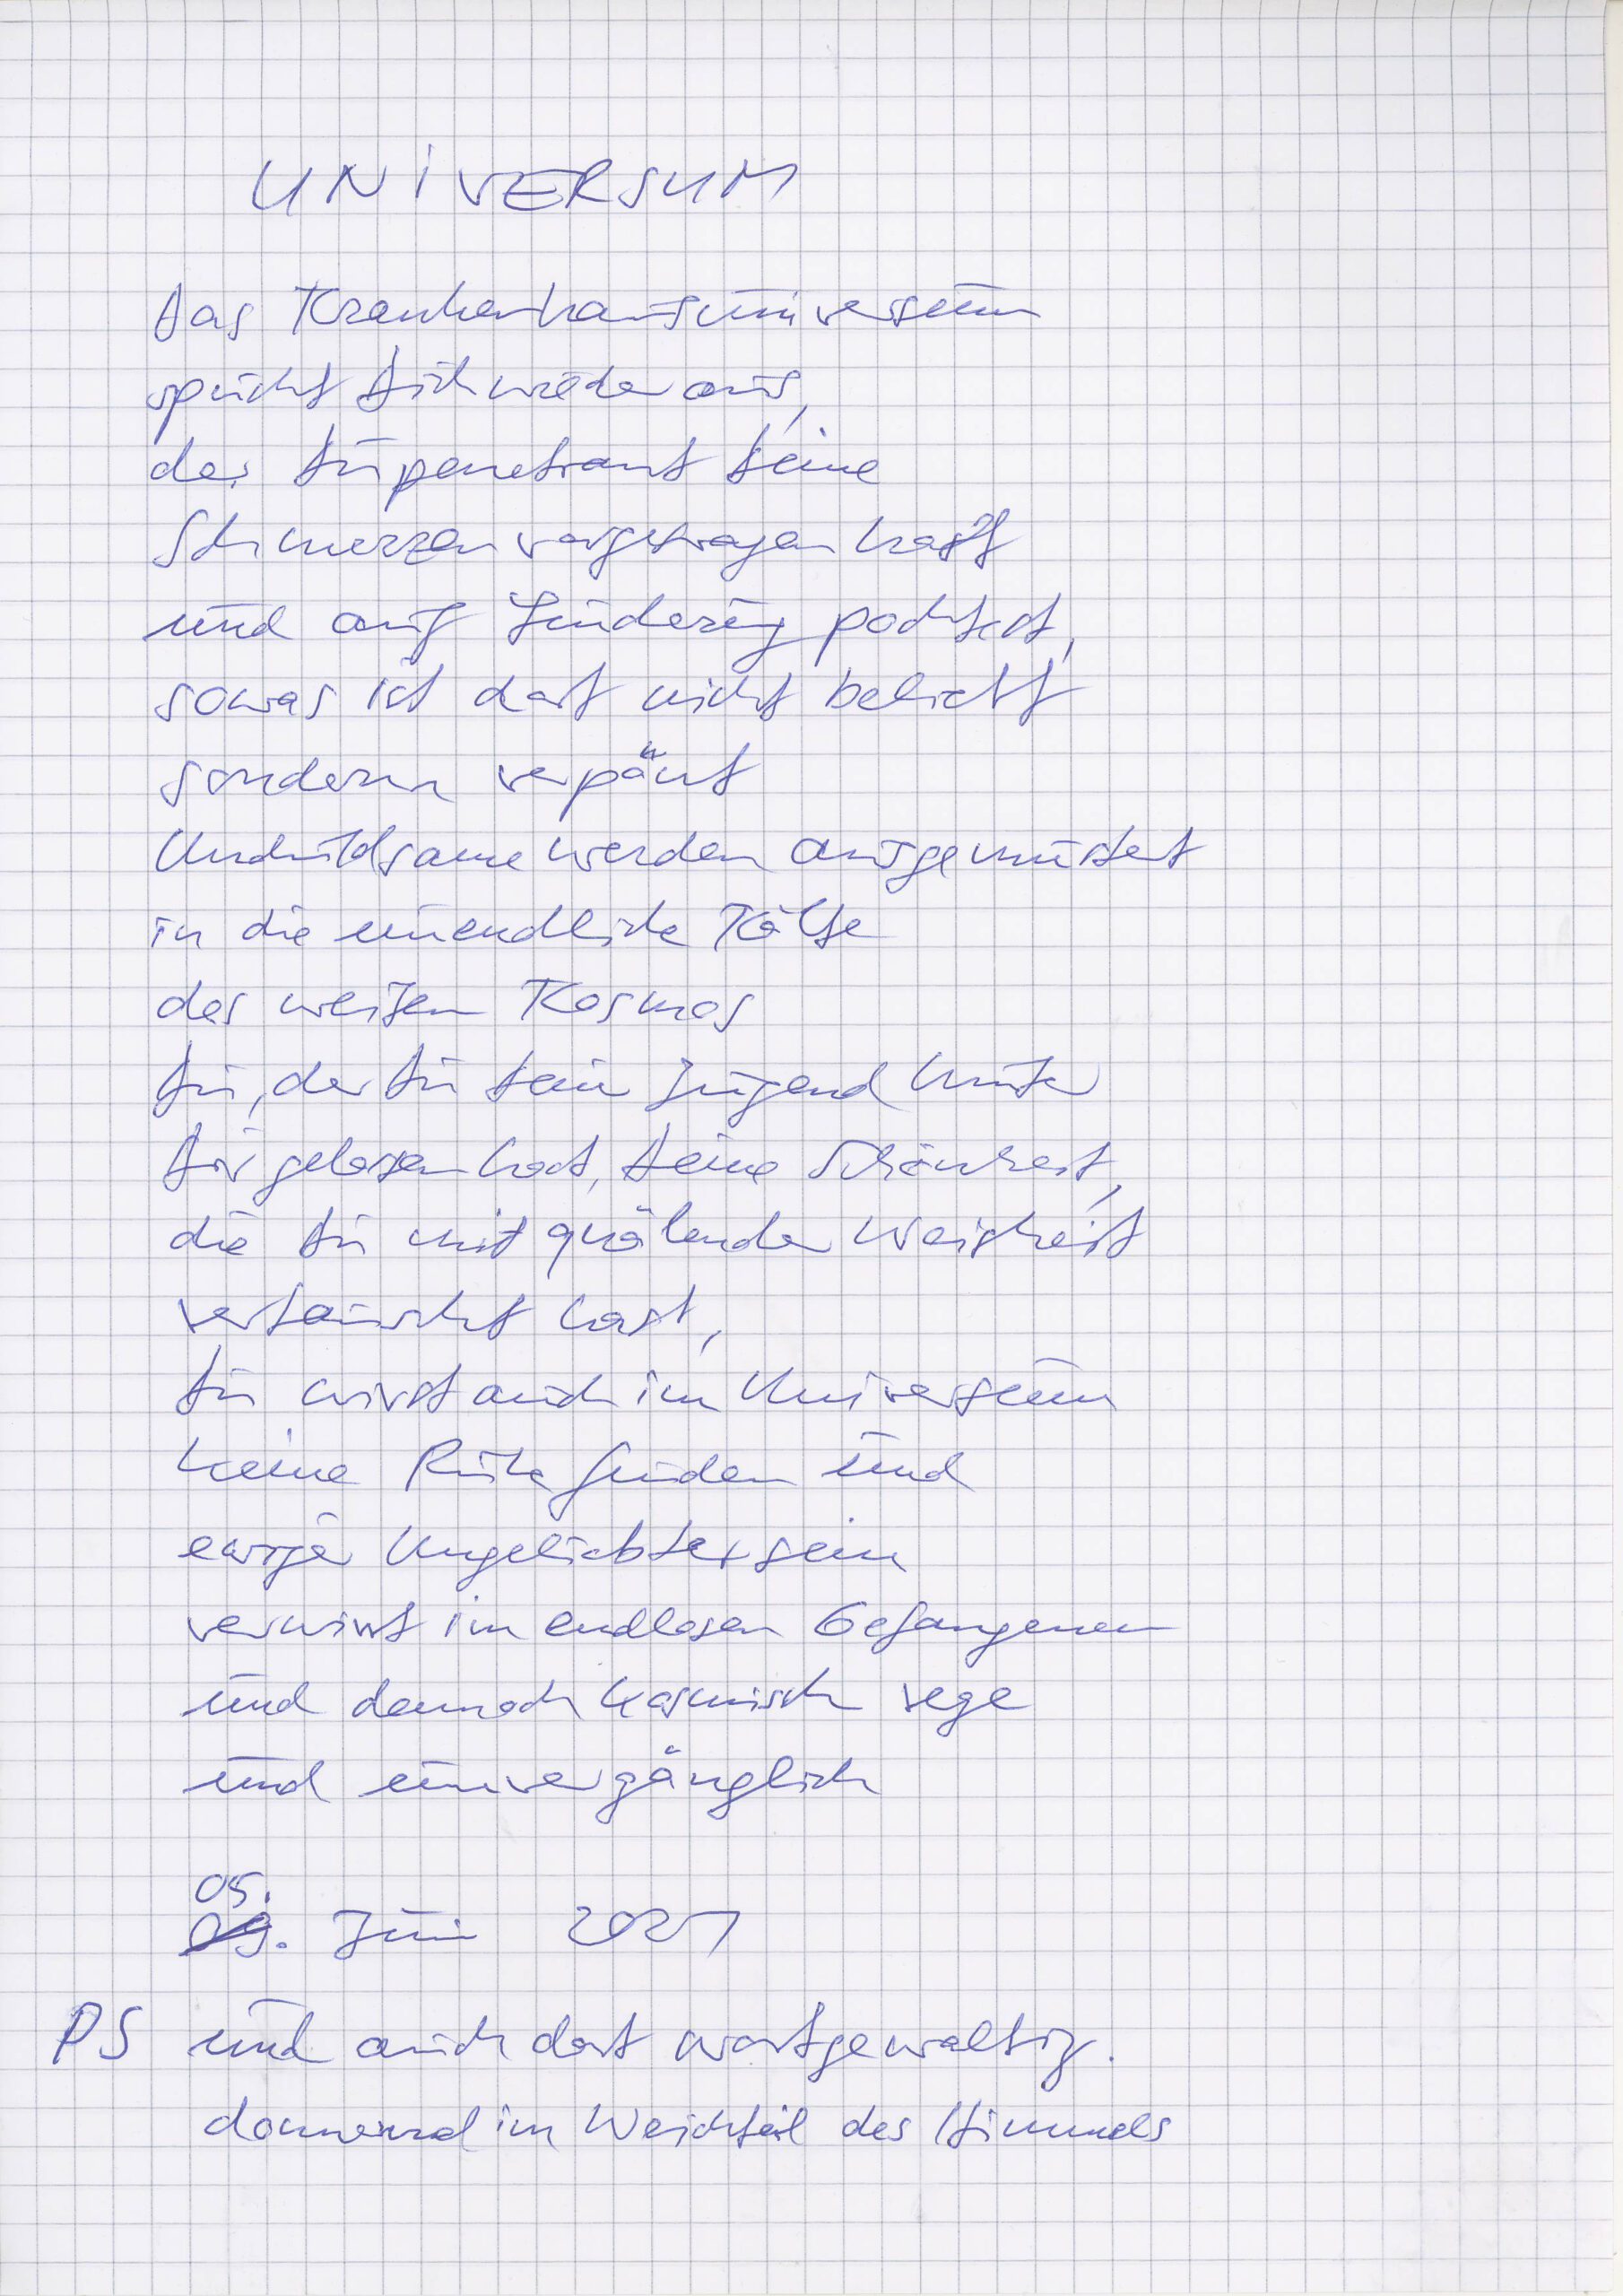 UNIVERSUM
Das Krankenhausuniversum
spuckt Dich wieder aus,
der Du penetrant Deine
Schmerzen vorgetragen hast
und auf Linderung pochtest,
sowas ist dort nicht beliebt
sondern verpönt
Unduldsame werden ausgemustert
in die unendliche Kälte
des weiten Kosmos
Du, der Du Dein Jugend hinter
Dir gelassen hast, Deine Schönheit,
die Du mit quälender Weisheit
vertauscht hast,
Du wirst auch im Universum
keine Ruhe finden und
ewiger Ungeliebter sein
verwirrt im endlosen Gefangenen
und dennoch kosmisch rege
und unvergänglich
05.
09. Juni 2021
PS und auch dort wortgewaltig.
donnernd im Weichteil des Himmels